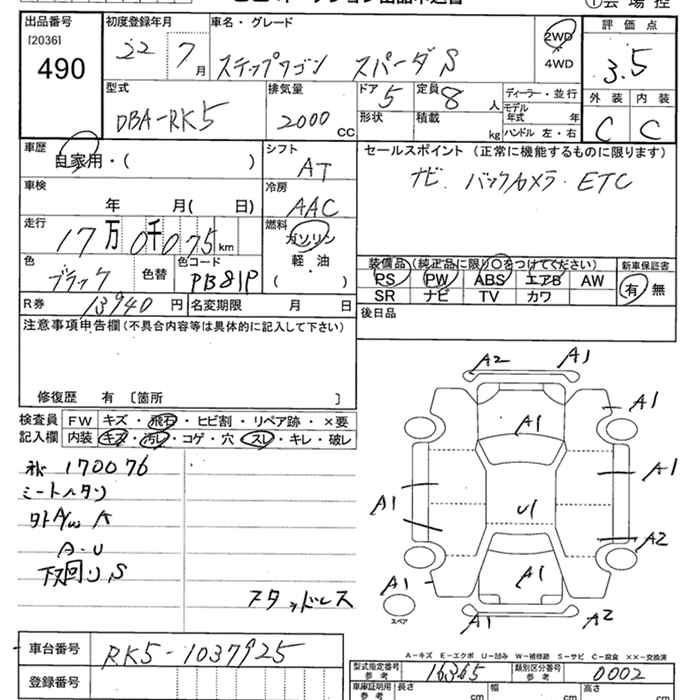 会場控
出品番号 初度登録年月 車名・グレード 評価点
[2036] 22 7月 ステップワゴン スパーダ S 2WD・4WD 3.5
490
型式 排気量 ドア 5 定員 8人 ディーラー・並行 外装 内装
DBA-RK5 2000 cc 形状 積載 kg モデル年式 年 C C
ハンドル 左・右
車歴 シフト セールスポイント (正常に機能するものに限ります)
自家用・( ) AT ナビ バックカメラ・ETC
車検 冷房
年 月( 日) AAC
走行 燃料
17万0千075km ガソリン・軽・油 ( )
装備品 (純正品に限り○をつけてください) 新車保証書
色 色替 色コード PS PW ABS エアB AW 有 無
ブラック PB81P SR ナビ TV カワ
R券 13940円 名変期限 月 日 後日品
注意事項申告欄 (不具合内容等は具体的に記入して下さい)
修復歴 有 [箇所 ]
検査員 FW キズ・飛石・ヒビ割・リペア跡・×要
記入欄 内装 キズ・汚レ・コゲ・穴・スレ・キレ・破レ
170076
A・U
下回りS
スタッドレス
A2 A1
A1 A1
A1 A1
U1
A2
A1 A1
A1 A2
スペア
A-キズ E-エクボ U-凹み W-補修跡 S-サビ C-腐食 ××-交換済
車台番号 RK5-1037925
型式指定番号 参考 16365 類別区分番号 参考 0002
登録番号
車庫証明用 参考 長さ cm 幅 cm 高さ cm